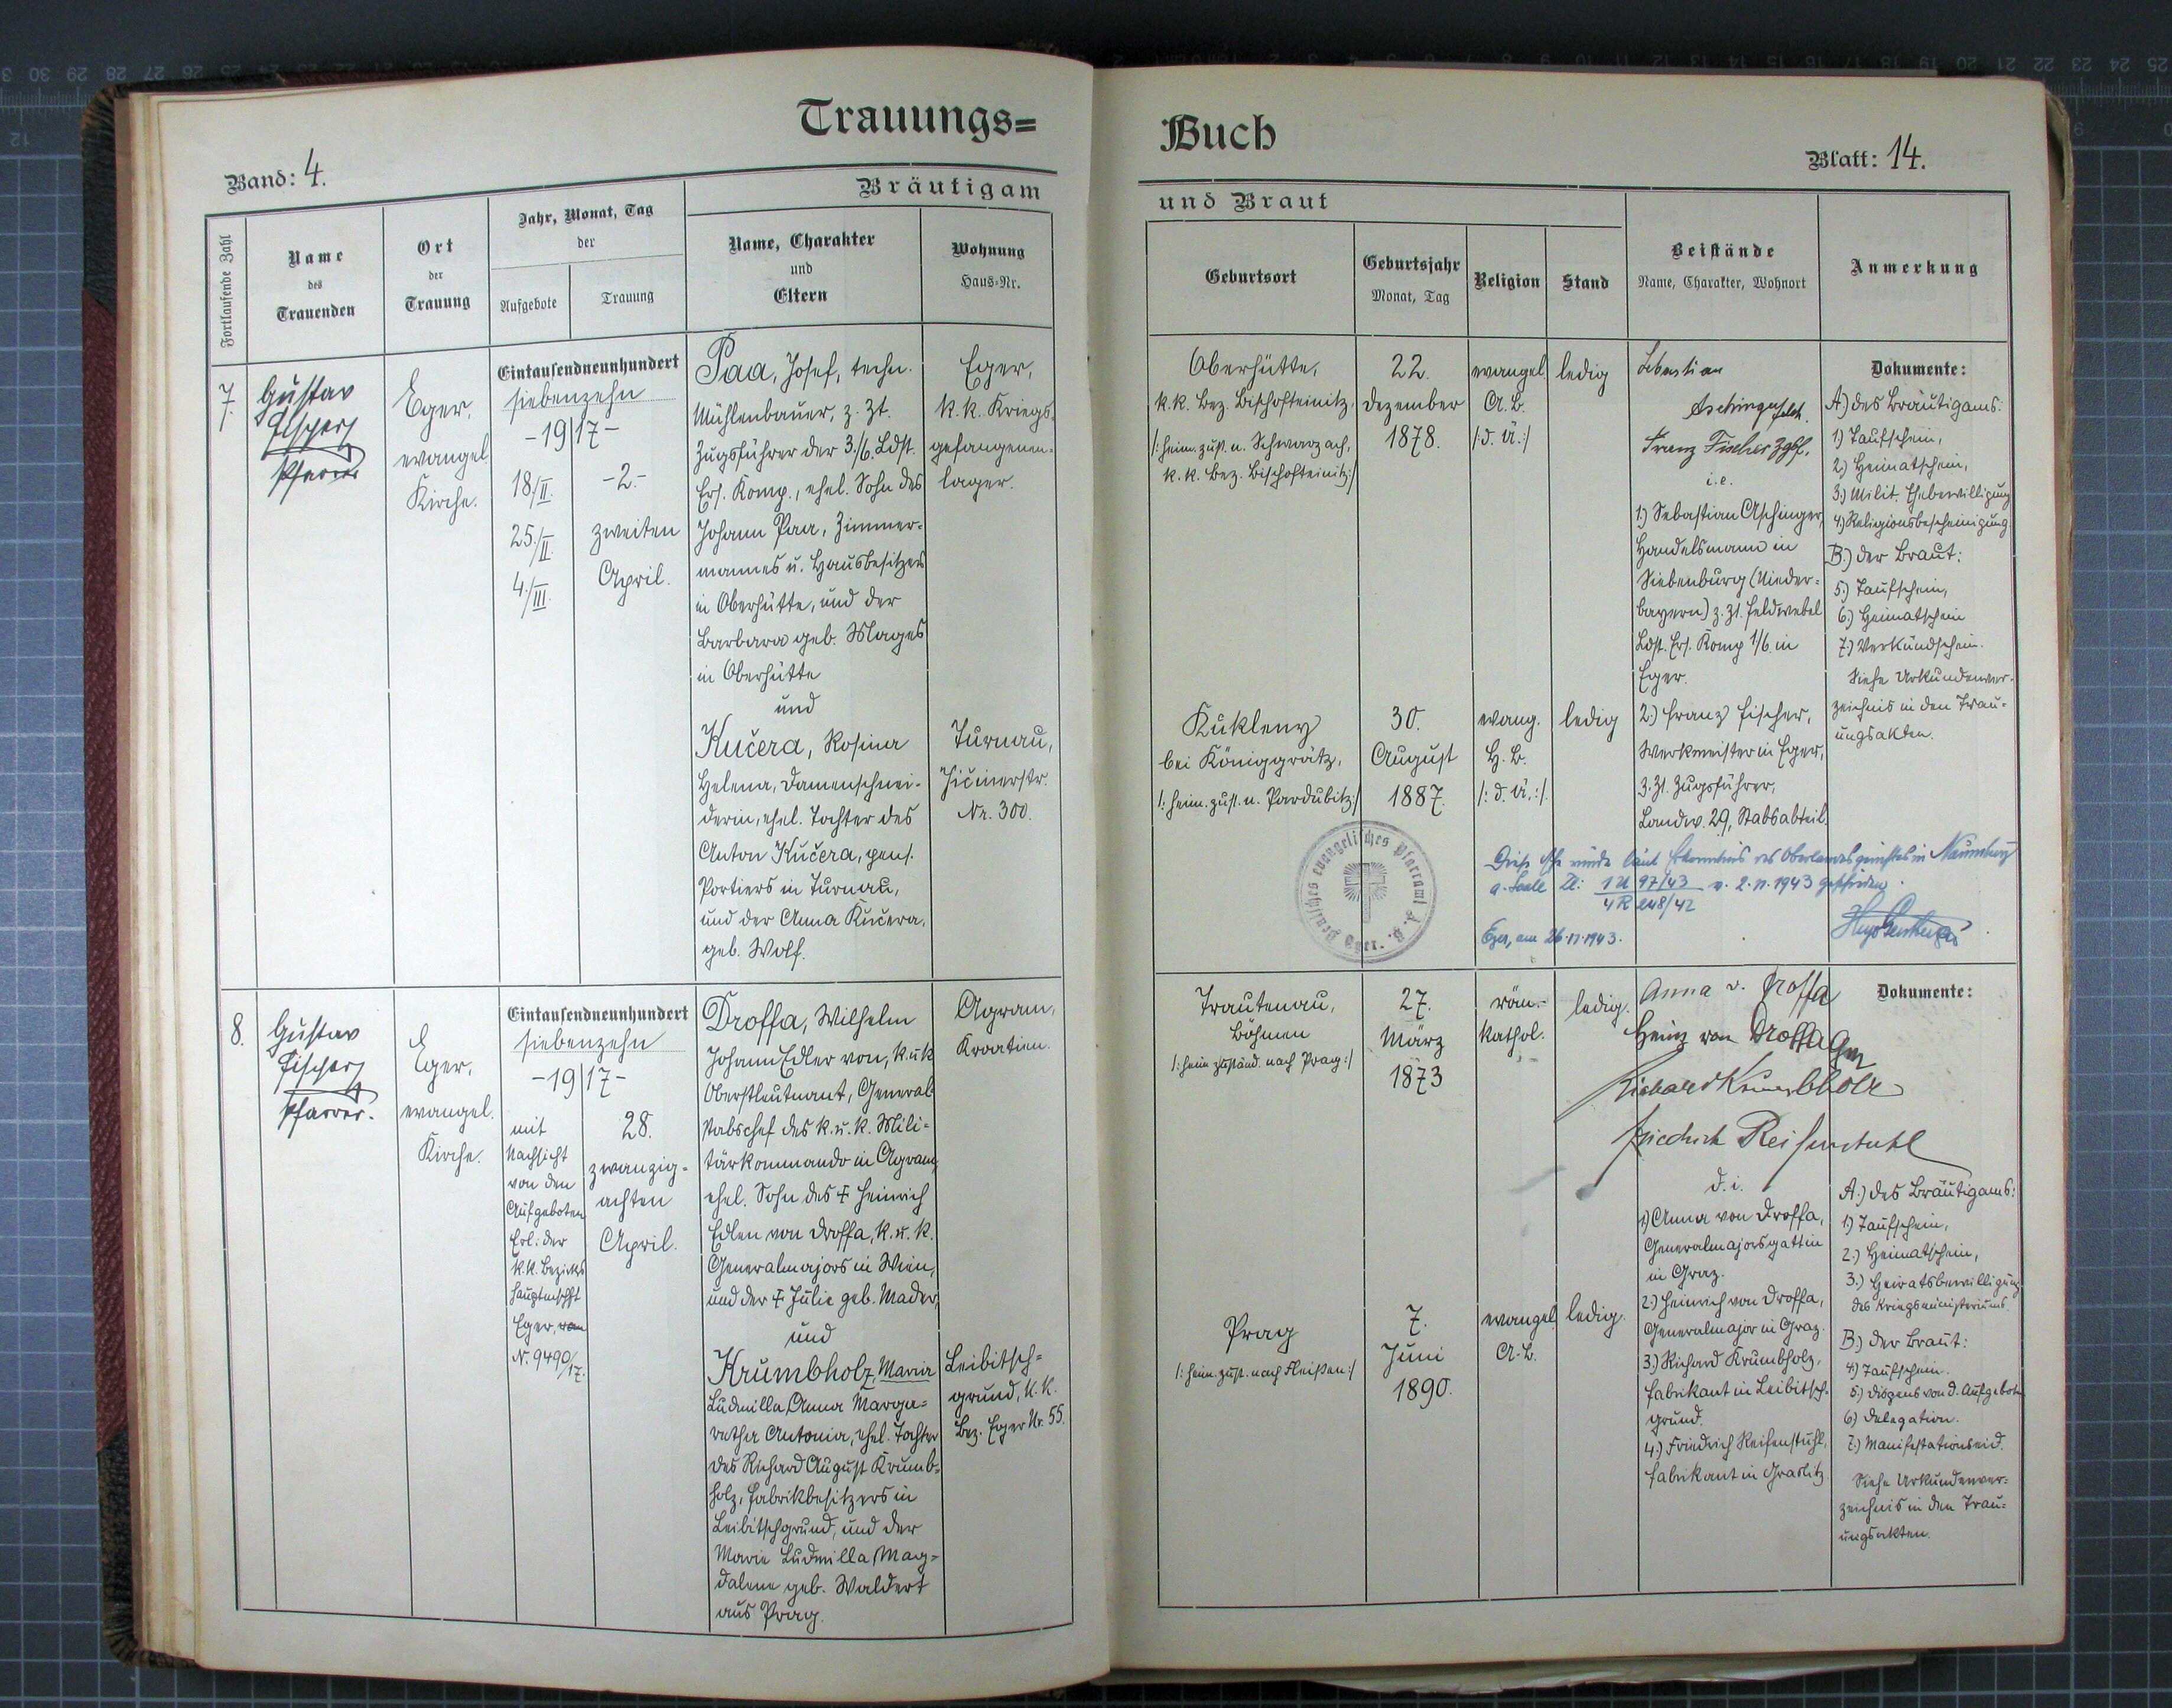 Trauungs=
Buch
Band: 4.
Blatt: 14.
Bräutigam
und Braut
Fortlaufende Zahl
Name
des
Trauenden
Ort
der
Trauung
Jahr, Monat, Tag
der
Aufgebote
Trauung
Name, Charakter
und
Eltern
Wohnung
Haus-Nr.
Geburtsort
Geburtsjahr
Monat, Tag
Religion
Stand
Beistände
Name, Charakter, Wohnort
Anmerkung
7.
Gustav
Fischer
Pfarrer
Eger,
evangel.
Kirche.
Eintausendneunhundert
siebenzehn
-19|17-
18/II.
25./II.
4./III.
-2.-
zweiten
April.
Paa, Josef, techn.
Mühlenbauer, z. Zt.
Zugsführer der 3./6. Ldst.
Ers. Komp., ehel. Sohn des
Johann Paa, Zimmer-
mannes u. Hausbesitzers
in Oberhütte, und der
Barbara geb. Mages
in Oberhütte
und
Kučera, Rosina
Helena, Damenschnei-
derin, ehel. Tochter des
Anton Kučera, pens.
Portiers in Turnau,
und der Anna Kučera,
geb. Wolf.
Eger,
k.k. Kriegs-
gefangenen-
lager.
Turnau,
Jičinerstr.
Nr. 300.
Oberhütte,
k.k. Bez. Bischofteinitz.
/: heim. zust. n. Schwarzach,
k.k. Bez. Bischofteinitz:/
22.
Dezember
1878.
evangel.
A.B.
/:d. ä.:/
ledig
Kukleny
bei Königgrätz,
/: heim. zust. n. Pardubitz:/
30.
August
1887.
evang.
H.B.
/: d. ä.:/
ledig
Sebastian
Aschinger
Franz Fischer Zgsf.
i.e.
1.) Sebastian Aschinger,
Handelsmann in
Siebenburg (Nieder-
bayern) z. Zt. Feldwebel
Ldst. Ers. Komp 1/6. in
Eger.
2.) Franz Fischer,
Werkmeister in Eger,
z. Zt. Zugsführer,
Landw. 29, Stabsabteil.
Dokumente:
A.) des Bräutigams:
1) Taufschein,
2.) Heimatschein,
3.) Milit. Ehebewilligung
4) Religionsbescheinigung.
B.) der Braut:
5.) Taufschein,
6.) Heimatschein
7.) Verkündschein.
Siehe Urkundenver-
zeichnis in den Trau-
ungsakten.
Diese Ehe wurde laut Erkenntnis des Oberlandesgerichtes in Naumburg
a. Saale Zl: 1 U 97/43 v. 2.11.1943 geschieden.
4 R 248/42
Eger, am 26.11.1943.
Deutsches evangelisches Pfarramt A.B. Eger.
8.
Gustav
Fischer
Pfarrer.
Eger,
evangel.
Kirche.
Eintausendneunhundert
siebenzehn
-19|17-
mit
Nachsicht
von den
Aufgeboten
Erl: der
k.k. Bezirks
hauptmschft
Eger, von
N. 9490/17.
28.
zwanzig-
achten
April.
Droffa, Wilhelm
Johann Edler von, k.u.k.
Oberstleutnant, General-
stabschef des k.u.k. Mili-
tärkommando in Agram,
ehel. Sohn des † Heinrich
Edlen von Droffa, k.u.k.
Generalmajors in Wien,
und der † Julie geb. Mader,
und
Krumbholz, Maria
Ludmilla Anna Marga-
retha Antonia, ehel. Tochter
des Richard August Krumb-
holz, Fabrikbesitzers in
Leibitschgrund, und der
Marie Ludmilla Mag-
dalene geb. Waldert
aus Prag.
Agram,
Kroatien.
Leibitsch-
grund, k.k.
Bez. Eger Nr. 55.
Trautenau,
Böhmen
/: heim zuständ. nach Prag:/
27.
März
1873
röm.-
kathol.
ledig.
Prag
/: heim. zust. nach Fleißen:/
7.
Juni
1890.
evangel.
A.B.
ledig.
Anna v. Droffa
Heinz von Droffa Gm
Richard Krumbholz
Friedrich Reifenstuhl
d.i.
1) Anna von Droffa,
Generalmajorsgattin
in Graz.
2.) Heinrich von Droffa,
Generalmajor in Graz.
3.) Richard Krumbholz,
Fabrikant in Leibitsch-
grund.
4.) Friedrich Reifenstuhl,
Fabrikant in Graslitz.
Dokumente:
A.) des Bräutigams:
1) Taufschein,
2.) Heimatschein,
3.) Heiratsbewilligung
des Kriegsministeriums.
B.) der Braut:
4) Taufschein.
5.) Dispens von d. Aufgeboten
6) Delegation.
7.) Manifestationseid.
Siehe Urkundenver-
zeichnis in den Trau-
ungsakten.